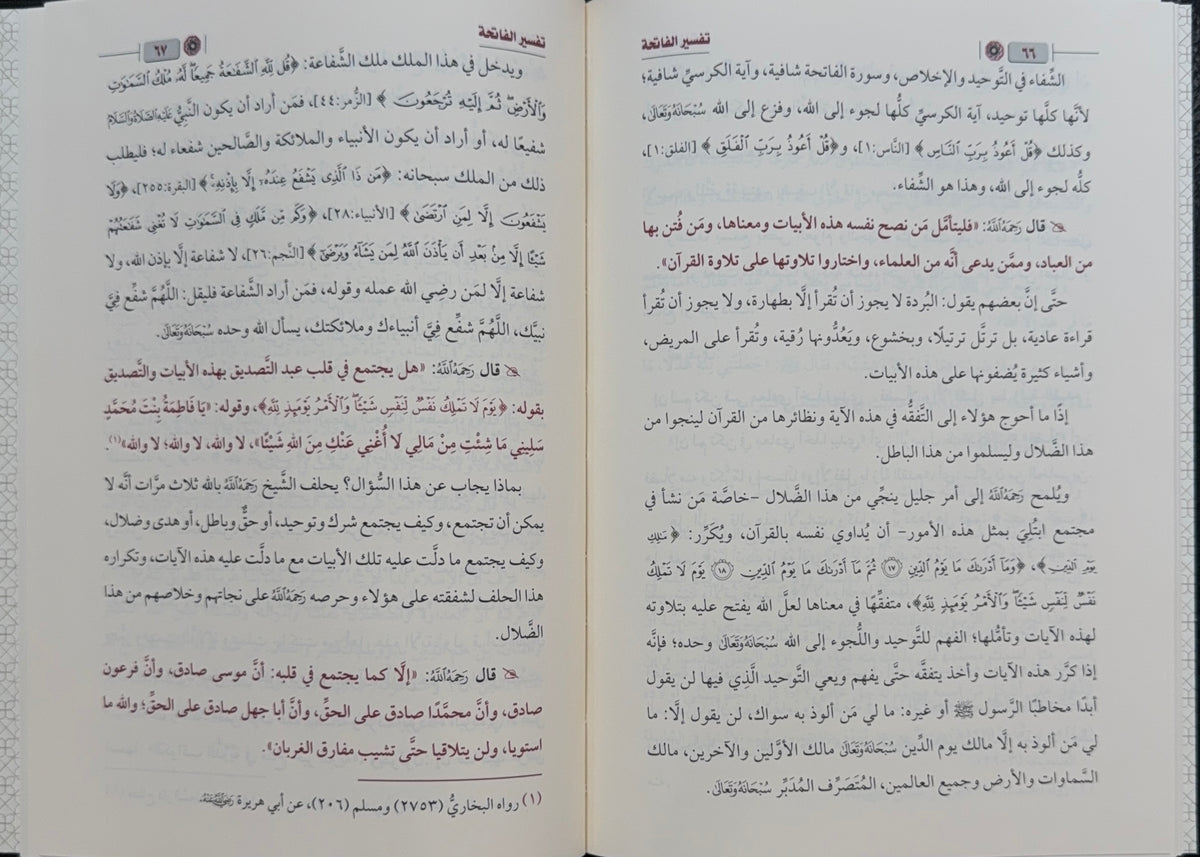 ٦٦
تفسير الفاتحة
الشِّفاء في التَّوحيد والإخلاص، وسورة الفاتحة شافية، وآية الكرسيِّ شافية؛
لأنَّها كلَّها توحيد، آية الكرسيِّ كلُّها لجوء إلى الله، وفزع إلى الله سُبْحَانَهُ وَتَعَالَى،
وكذلك ﴿قُلْ أَعُوذُ بِرَبِّ النَّاسِ﴾ [النَّاس:١]، و﴿قُلْ أَعُوذُ بِرَبِّ الْفَلَقِ﴾ [الفلق:١]،
كلُّه لجوء إلى الله، وهذا هو الشِّفاء.
قال رَحِمَهُ اللَّهُ: «فليتأمَّل مَن نصح نفسه هذه الأبيات ومعناها، ومَن فُتن بها
من العباد، وممَّن يدعى أنَّه من العلماء، واختاروا تلاوتها على تلاوة القرآن».
حتَّى إنَّ بعضهم يقول: البُردة لا يجوز أن تُقرأ إلَّا بطهارة، ولا يجوز أن تُقرأ
قراءة عادية، بل ترتَّل ترتيلًا، وبخشوع، ويَعُدُّونها رُقية، وتُقرأ على المريض،
وأشياء كثيرة يُضفونها على هذه الأبيات.
إذًا ما أحوج هؤلاء إلى التَّفقُّه في هذه الآية ونظائرها من القرآن لينجوا من
هذا الضَّلال وليسلموا من هذا الباطل.
ويُلمح رَحِمَهُ اللَّهُ إلى أمر جليل ينجِّي من هذا الضَّلال -خاصَّة مَن نشأ في
مجتمع ابتُلِيَ بمثل هذه الأمور- أن يُداوي نفسه بالقرآن، ويُكَرِّر: ﴿مَٰلِكِ
يَوْمِ الدِّينِ﴾، ﴿وَمَا أَدْرَىٰكَ مَا يَوْمُ الدِّينِ ١٧ ثُمَّ مَا أَدْرَىٰكَ مَا يَوْمُ الدِّينِ ١٨ يَوْمَ لَا تَمْلِكُ
نَفْسٌ لِّنَفْسٍ شَيْئًا وَالْأَمْرُ يَوْمَئِذٍ لِّلَّهِ﴾، متفقِّهًا في معناها لعلَّ الله يفتح عليه بتلاوته
لهذه الآيات وتأمُّلها؛ الفهم للتَّوحيد واللُّجوء إلى الله سُبْحَانَهُ وَتَعَالَى وحده؛ فإنَّه
إذا كرَّر هذه الآيات وأخذ يتفقَّه حتَّى يفهم ويعي التَّوحيد الَّذي فيها لن يقول
أبدًا مخاطبًا الرَّسول ﷺ أو غيره: ما لي مَن ألوذ به سواك، لن يقول إلَّا: ما
لي مَن ألوذ به إلَّا مالك يوم الدِّين سُبْحَانَهُ وَتَعَالَى مالك الأوَّلين والآخرين، مالك
السَّماوات والأرض وجميع العالمين، المُتَصَرِّف المُدَبِّر سُبْحَانَهُ وَتَعَالَى.
تفسير الفاتحة
٦٧
ويدخل في هذا الملك ملك الشَّفاعة: ﴿قُل لِّلَّهِ الشَّفَٰعَةُ جَمِيعًا لَّهُ مُلْكُ السَّمَٰوَٰتِ
وَالْأَرْضِ ثُمَّ إِلَيْهِ تُرْجَعُونَ﴾ [الزُّمر:٤٤]، فمَن أراد أن يكون النَّبيُّ عَلَيْهِ الصَّلَاةُ وَالسَّلَامُ
شفيعًا له، أو أراد أن يكون الأنبياء والملائكة والصَّالحين شفعاء له؛ فليطلب
ذلك من الملك سبحانه: ﴿مَن ذَا الَّذِي يَشْفَعُ عِندَهُ إِلَّا بِإِذْنِهِ﴾ [البقرة:٢٥٥]، ﴿وَلَا
يَشْفَعُونَ إِلَّا لِمَنِ ارْتَضَىٰ﴾ [الأنبياء:٢٨]، ﴿وَكَم مِّن مَّلَكٍ فِي السَّمَٰوَٰتِ لَا تُغْنِي شَفَٰعَتُهُمْ
شَيْئًا إِلَّا مِن بَعْدِ أَن يَأْذَنَ اللَّهُ لِمَن يَشَاءُ وَيَرْضَىٰ﴾ [النَّجم:٢٦]، لا شفاعة إلَّا بإذن الله، ولا
شفاعة إلَّا لمَن رضِي الله عمله وقوله، فمَن أراد الشَّفاعة فليقل: اللَّهُمَّ شفِّع فِيَّ
نبيَّك، اللَّهُمَّ شفِّع فِيَّ أنبياءك وملائكتك، يسأل الله وحده سُبْحَانَهُ وَتَعَالَى.
قال رَحِمَهُ اللَّهُ: «هل يجتمع في قلب عبد التَّصديق بهذه الأبيات والتَّصديق
بقوله: ﴿يَوْمَ لَا تَمْلِكُ نَفْسٌ لِّنَفْسٍ شَيْئًا وَالْأَمْرُ يَوْمَئِذٍ لِّلَّهِ﴾، وقوله: «يَا فَاطِمَةُ بِنْتَ مُحَمَّدٍ
سَلِينِي مَا شِئْتِ مِنْ مَالِي لَا أُغْنِي عَنْكِ مِنَ اللهِ شَيْئًا»، لا والله، لا والله؛ لا والله»(١).
بماذا يجاب عن هذا السُّؤال؟ يحلف الشَّيخ رَحِمَهُ اللَّهُ بالله ثلاث مرَّات أنَّه لا
يمكن أن تجتمع، وكيف يجتمع شرك وتوحيد، أو حقٌّ وباطل، أو هدى وضلال،
وكيف يجتمع ما دلَّت عليه تلك الأبيات مع ما دلَّت عليه هذه الآيات، وتكراره
هذا الحلف لشفقته على هؤلاء وحرصه رَحِمَهُ اللَّهُ على نجاتهم وخلاصهم من هذا
الضَّلال.
قال رَحِمَهُ اللَّهُ: «إلَّا كما يجتمع في قلبه: أنَّ موسى صادق، وأنَّ فرعون
صادق، وأنَّ محمَّدًا صادق على الحقِّ، وأنَّ أبا جهل صادق على الحقِّ؛ والله ما
استويا، ولن يتلاقيا حتَّى تشيب مفارق الغربان».
(١) رواه البخاريُّ (٢٧٥٣) ومسلم (٢٠٦)، عن أبي هريرة رَضِيَ اللَّهُ عَنْهُ.